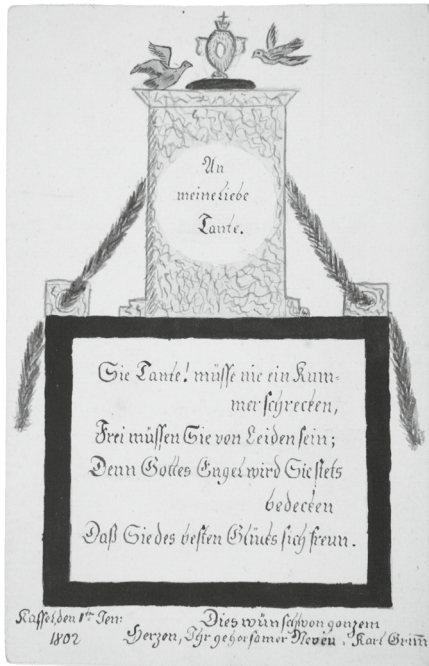 An
meine Liebe
Tante.
Sie Tante! müsse nie ein Kum=
mer schrecken,
Frei müssen Sie von Leiden sein;
Denn Gottes Engel wird Sie stets
bedecken
Daß Sie des besten Glücks sich freun.
Kassel den 1ten Jen:
1802
Dies wünscht von ganzem
Herzen, Ihr gehorsamer Neveu. Karl Grim̅